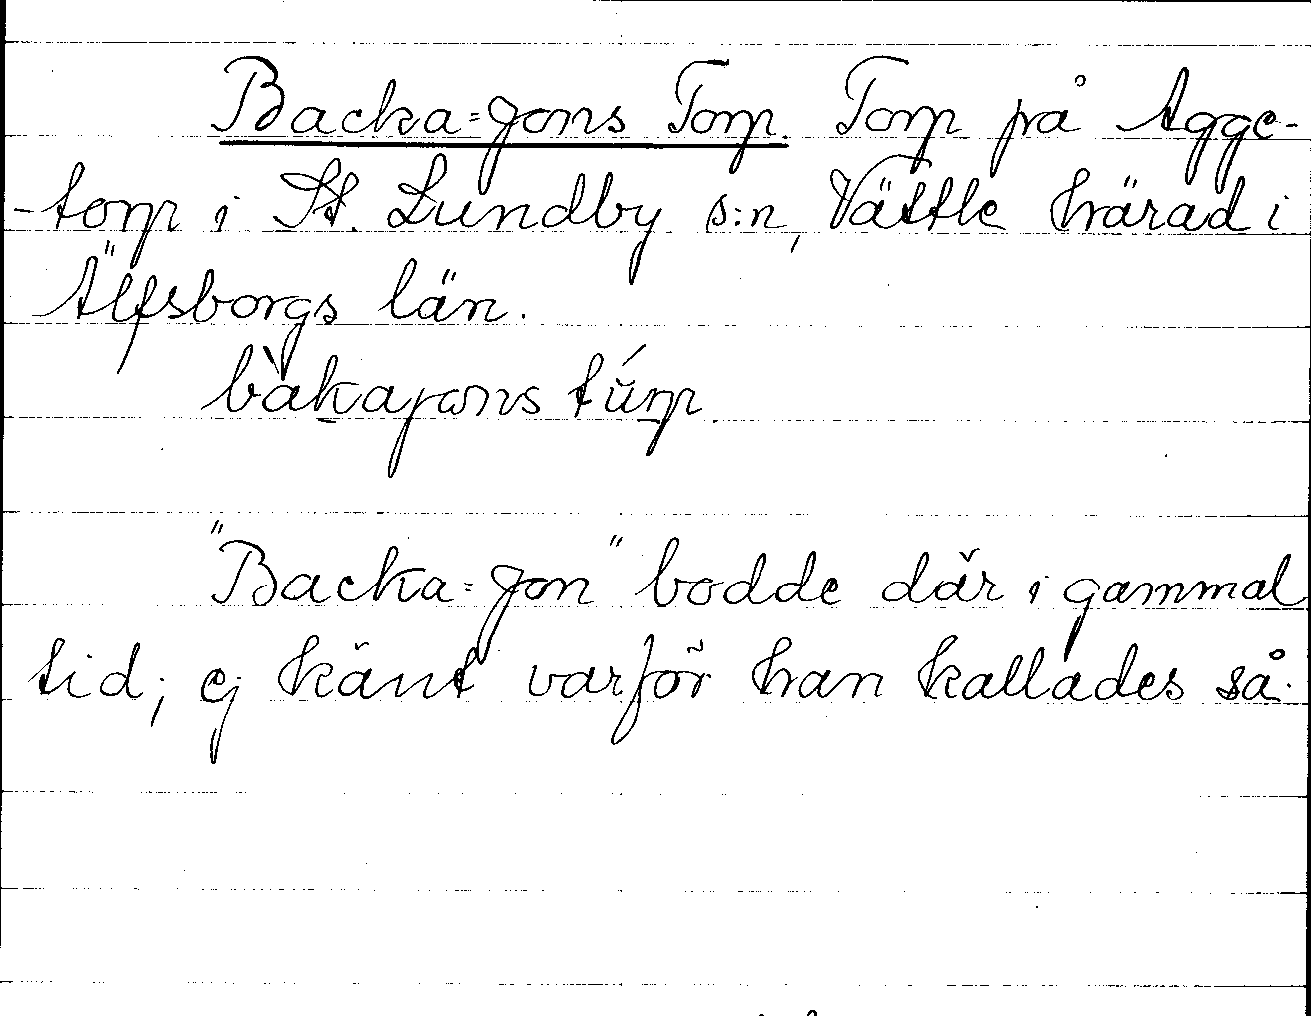 Backa=Jons Torp. Torp på Agge-
-torp i St. Lundby s:n, Vättle härad i
Älfsborgs län.
bàkajons túrp.
"Backa=Jon" bodde där i gammal
tid; ej känt varför han kallades så.